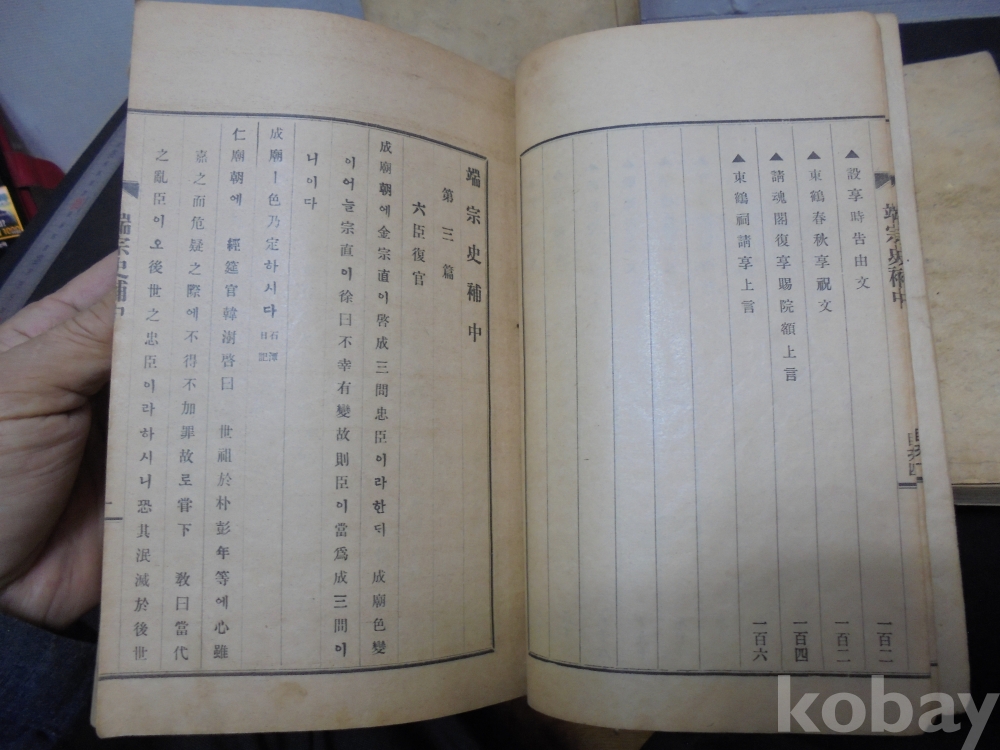 ▲設享時告由文 一百二
▲東鶴春秋享祝文 一百二
▲請魂閣復享賜院額上言 一百四
▲東鶴祠請享上言 一百六
端宗史補中
端宗史補中
第三篇
六臣復官
成廟朝에金宗直이啓成三問忠臣이라한ᄃᆡ 成廟色變
이어늘宗直이徐曰不幸有變故則臣이當爲成三問이
니이다
成廟ㅣ色乃定하시다 石潭日記
仁廟朝에 經筵官韓澍啓曰 世祖於朴彭年等에心雖
嘉之而危疑之際에不得不加罪故로嘗下 敎曰當代
之亂臣이오後世之忠臣이라하시니恐其泯滅於後世
端宗史補中
一
kobay